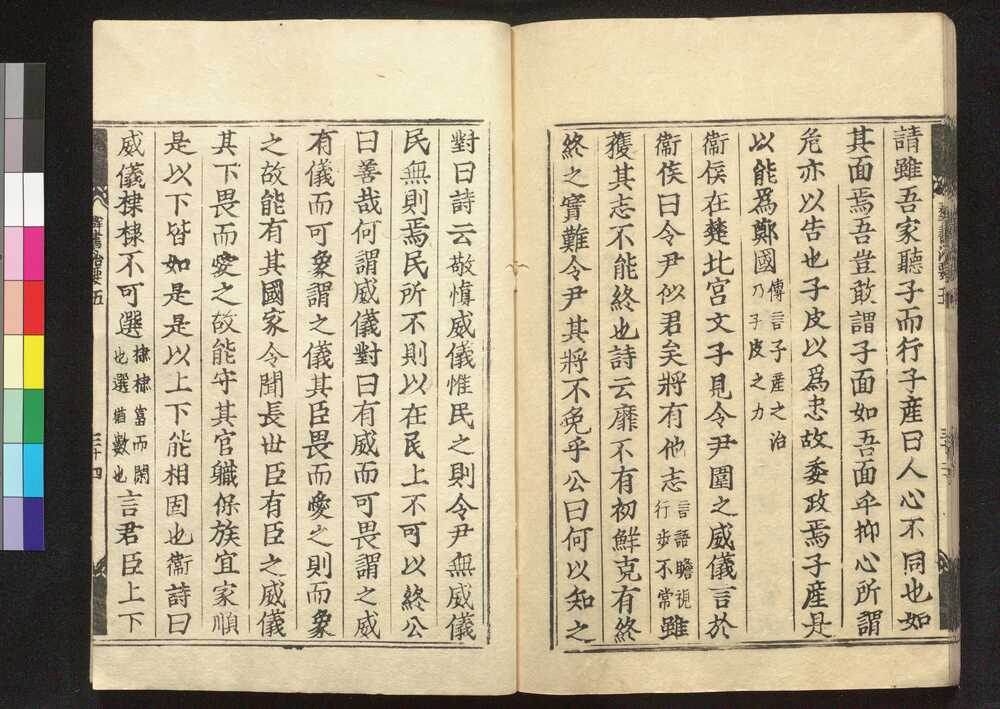 請雖吾家聽子而行子産曰人心不同也如
其面焉吾豈敢謂子面如吾面乎抑心所謂
危亦以告也子皮以爲忠故委政焉子産是
以能爲鄭國傳言子産之治乃子皮之力
衞侯在楚北宮文子見令尹圍之威儀言於
衞侯曰令尹似君矣將有他志言語瞻視行步不常雖
獲其志不能終也詩云靡不有初鮮克有終
終之實難令尹其將不免乎公曰何以知之
對曰詩云敬愼威儀惟民之則令尹無威儀
民無則焉民所不則以在民上不可以終公
曰善哉何謂威儀對曰有威而可畏謂之威
有儀而可象謂之儀其臣畏而愛之則而象
之故能有其國家令聞長世臣有臣之威儀
其下畏而愛之故能守其官職保族宜家順
是以下皆如是是以上下能相固也衞詩曰
威儀棣棣不可選棣棣富而閑也選猶數也言君臣上下
群書治要五
三十四